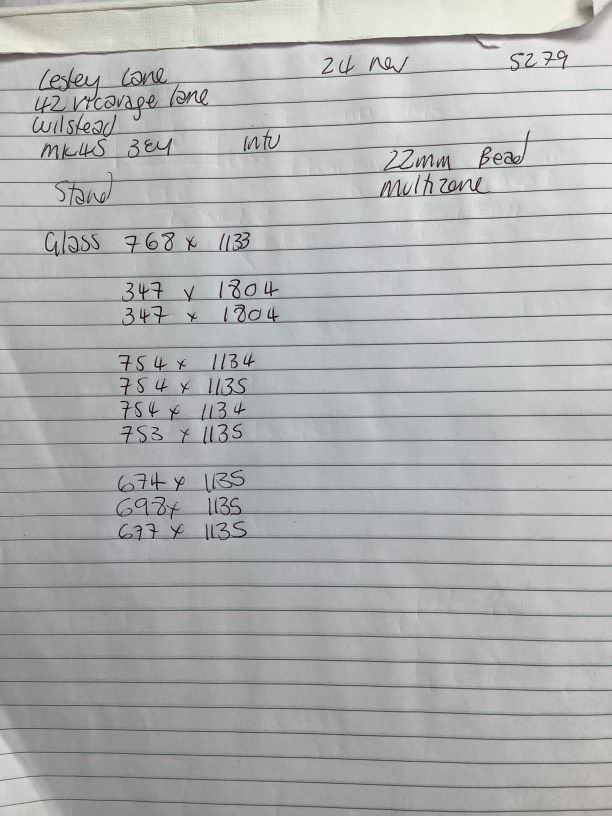 Lesley Lane 24 Nov 5279
42 vicarage lane
Wilstead
MK45 3EU intu
22mm Bead
Stand multizone
Glass 768 x 1133
347 x 1804
347 x 1804
754 x 1134
754 x 1135
754 x 1134
753 x 1135
674 x 1135
698 x 1135
677 x 1135